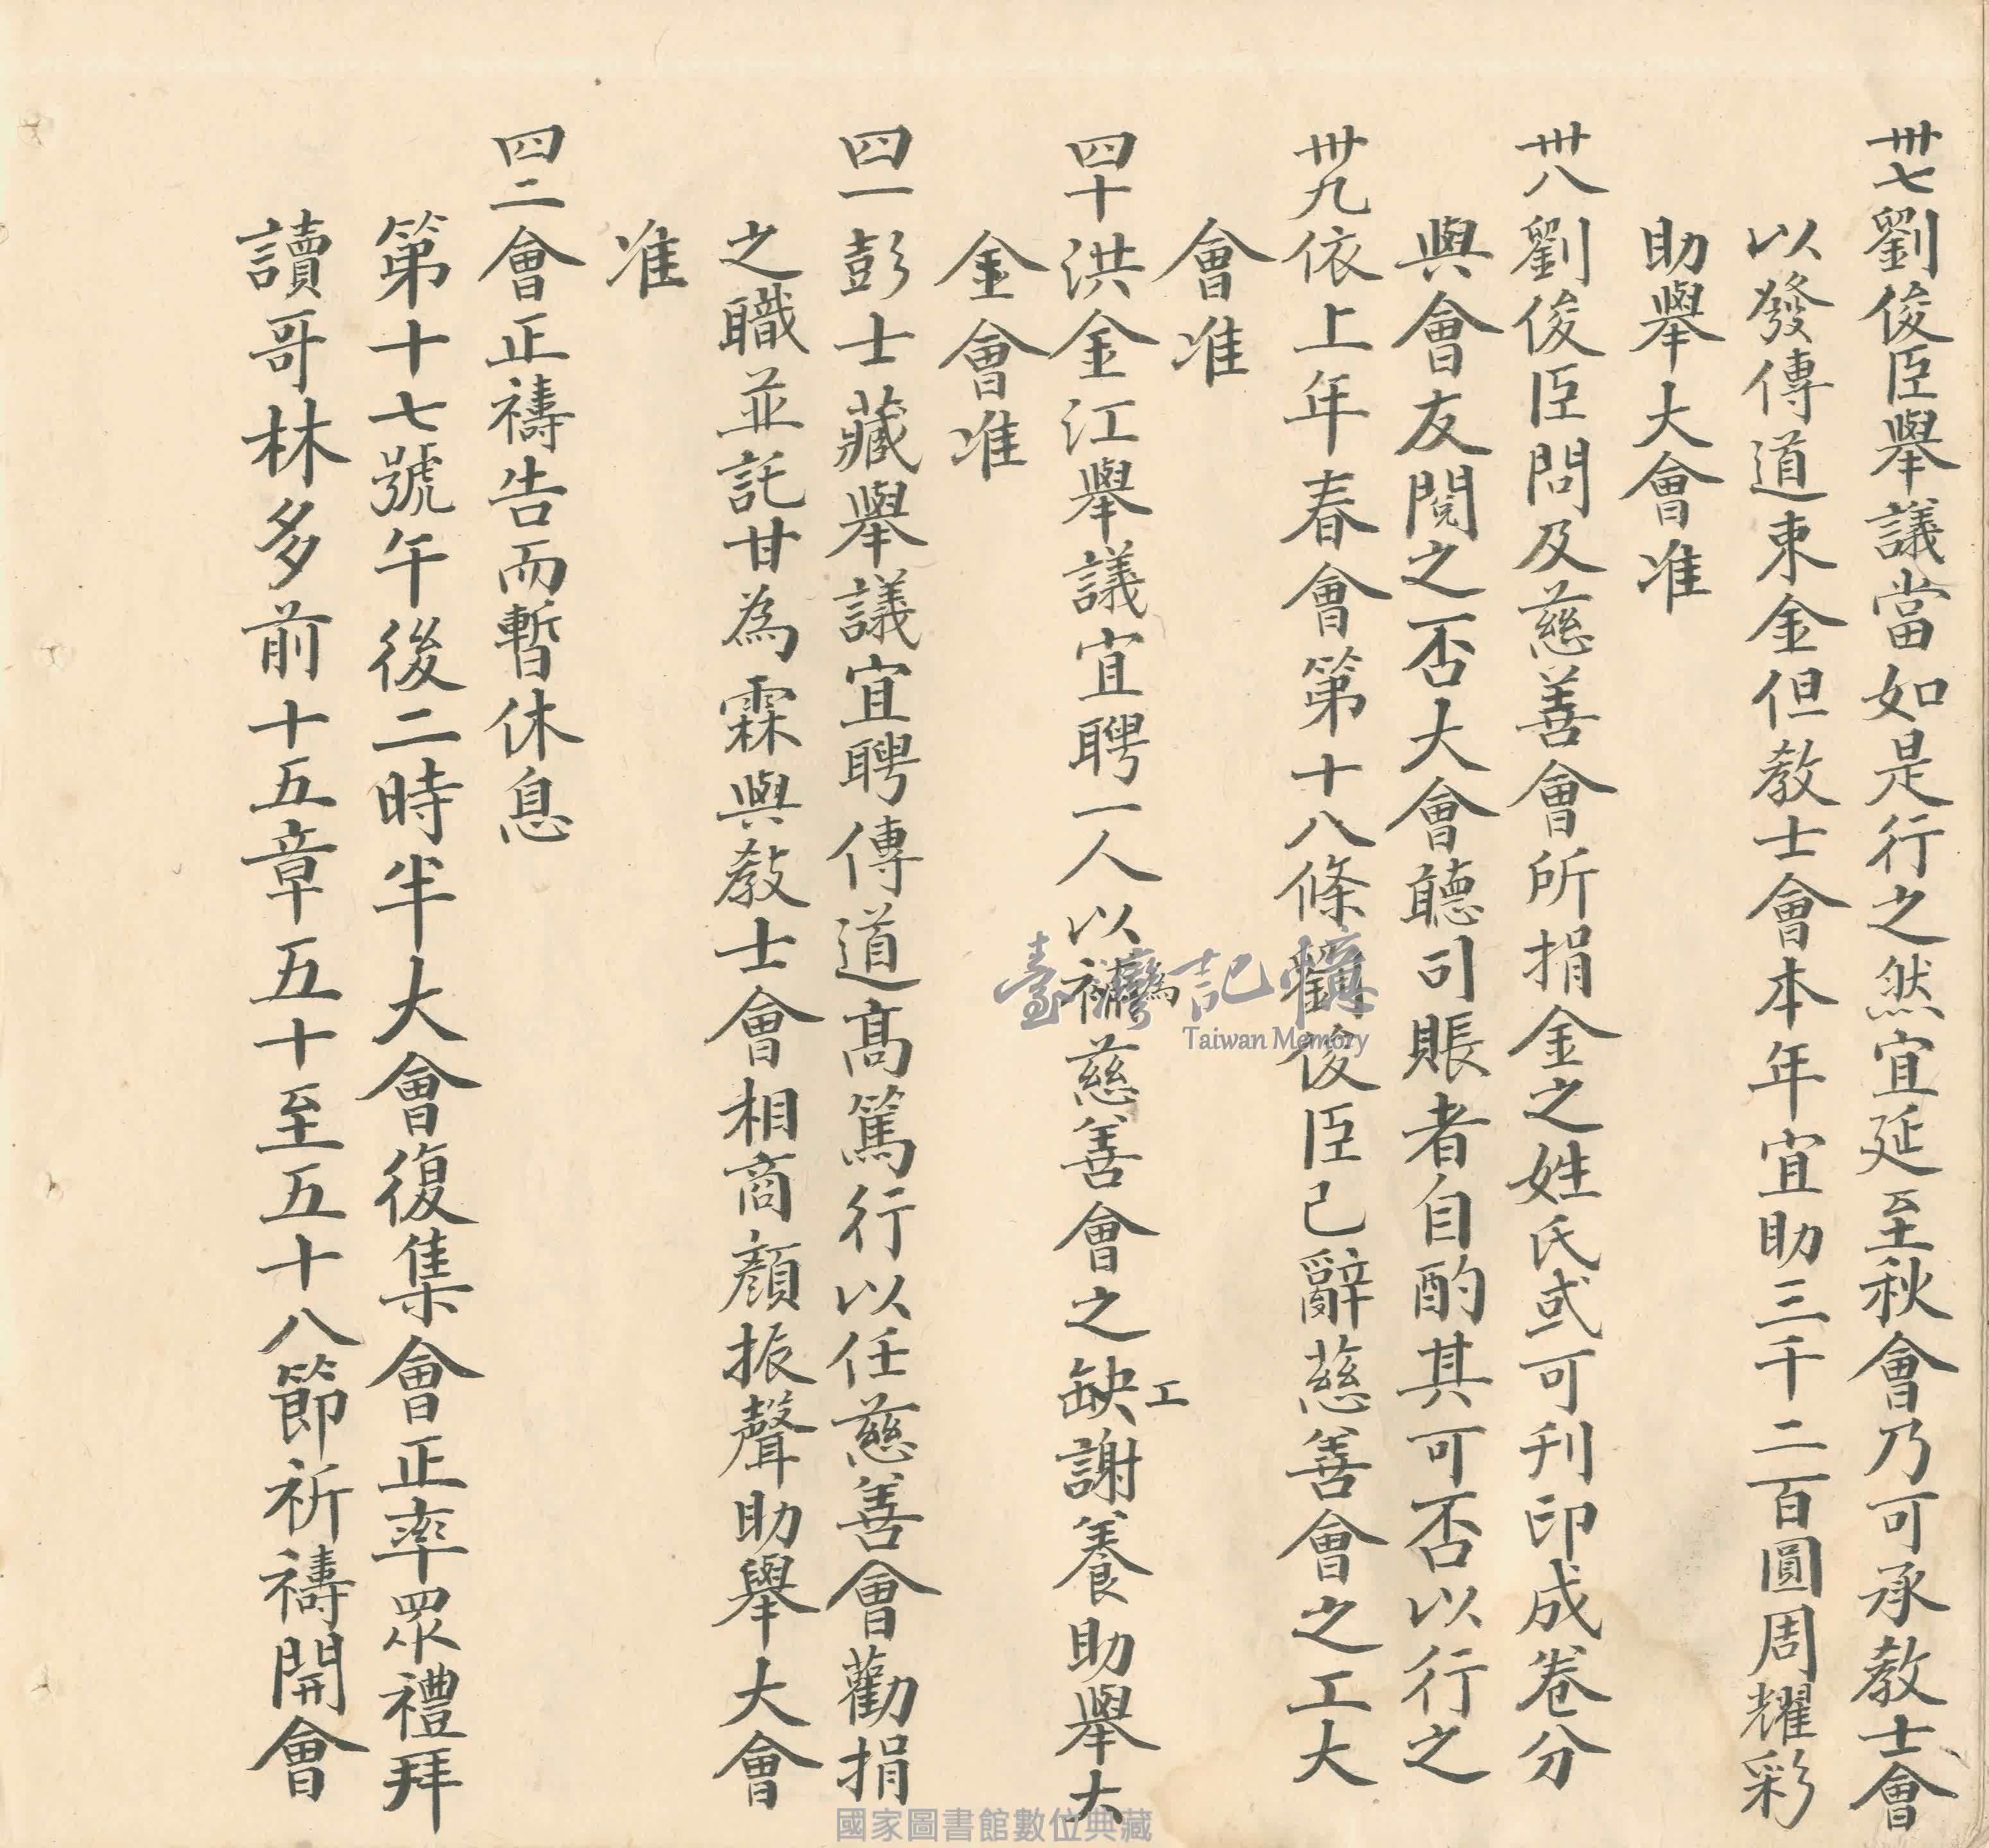 卅七劉俊臣舉議當如是行之然宜延至秋會乃可承教士會
以發傳道束金但教士會本年宜助三千二百圓周耀彩
助舉大會准
卅八劉俊臣問及慈善會所捐金之姓氏或可刊印成卷分
與會友閱之否大會聽司賬者自酌其可否以行之
卅九依上年春會第十八條劉俊臣已辭慈善會之工大
會准
四十洪金江舉議宜聘一人以補慈善會之缺工謝養助舉大
金會准
四一彭士藏舉議宜聘傳道高篤行以任慈善會勸捐
之職並託甘為霖與教士會相商顏振聲助舉大會
准
四二會正禱告而暫休息
第十七號午後二時半大會復集會正率眾禮拜
讀哥林多前十五章五十至五十八節祈禱開會
臺灣記憶
Taiwan Memory
國家圖書館數位典藏